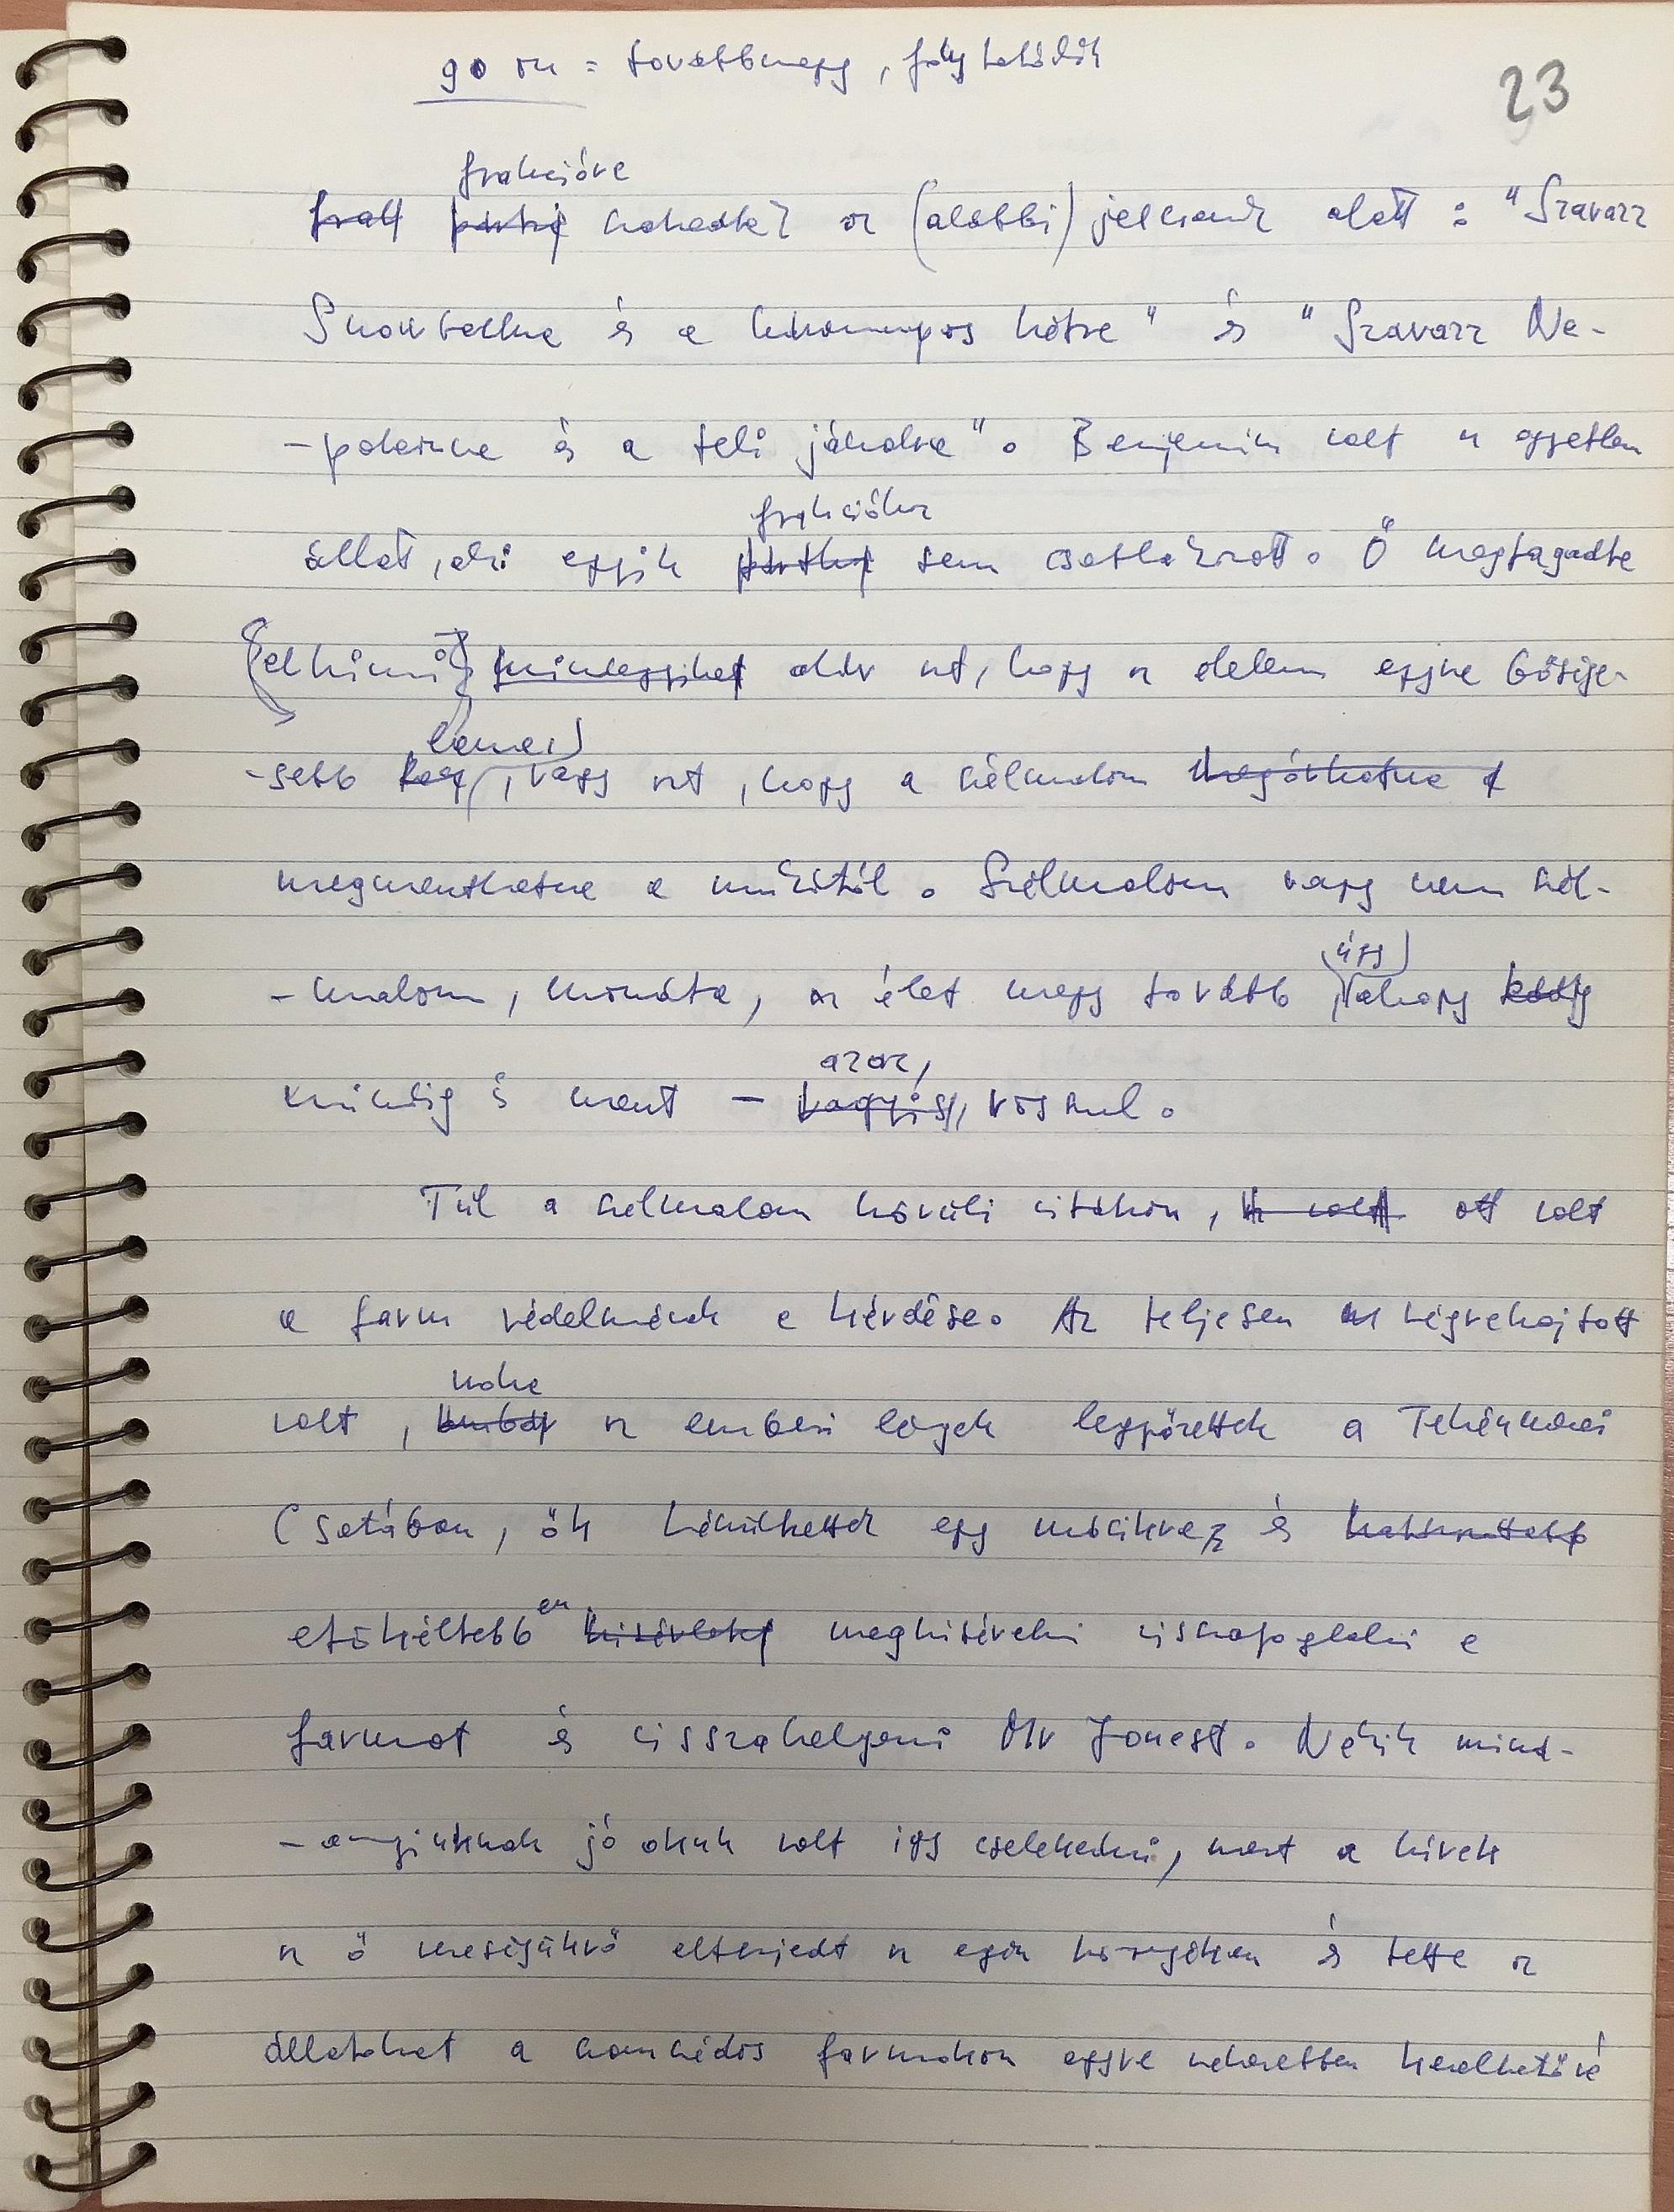 go on = továbbmegy, folytatódik
23
frakcióra
szakadtak az (alábbi) jelszavak alatt : "Szavazz
Snowballra és a háromnapos hétre" és "Szavazz Na-
-poleonra és a teli jászolra". Benjamin volt az egyetlen
frakcióhoz
állat, aki egyik sem csatlakozott. Ő megtagadta
elhinni mindegyiket akár azt, hogy az élelem egyre bősége-
lenne
-sebb, vagy azt, hogy a szélmalom megóvhatna
megmenthetne a munkától. Szélmalom vagy nem szél-
úgy
-malom, mondta, az élet megy tovább, ahogy
azaz,
mindig is ment - vagyis, rosszul.
Túl a szélmalom körüli vitákon, ott volt
a farm védelmének a kérdése. Az teljesen végrehajtott
noha
volt, az emberi lények legyőzettek a Tehénkarei
Csatában, ők készülhettek egy másikra és
eltökéltebben megkísérelni visszafoglalni a
farmot és visszahelyezni Mr Jonest. Nekik mind-
-annyiuknak jó okuk volt így cselekedni, mert a hírek
az ő vereségükről elterjedt az egész környéken és tette az
állatokat a szomszédos farmokon egyre nehezebben kezelhetővé